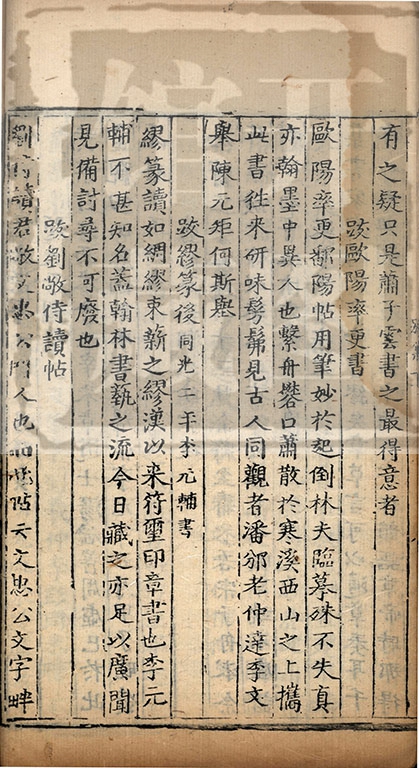 有之疑只是蕭子雲書之最得意者
跋歐陽率更書
歐陽率更鄱陽帖用筆妙於起倒林夫臨摹殊不失真
亦翰墨中異人也繫舟礬口蕭散於寒溪西山之上攜
此書往來研味髣髴見古人同觀者潘邠老仲達李文
舉陳元矩何斯舉
跋繆篆後同光二年李元輔書
繆篆讀如綢繆束薪之繆漢以來符璽印章書也李元
輔不甚知名蓋翰林書藝之流今日藏之亦足以廣聞
見備討尋不可廢也
跋劉敞侍讀帖
劉侍讀君敞文忠公門人也而此帖云文忠公文字畔